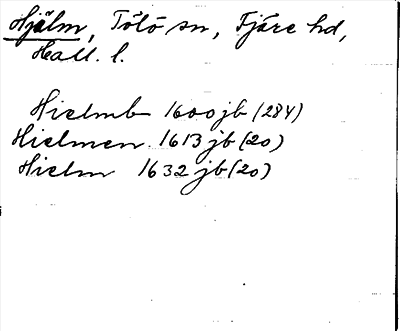 Hjälm, Tölö sn, Fjäre hd,
Hall. l.
Hielmb 1600 jb (284)
Hielmen 1613 jb (20)
Hielm 1632 jb (20)